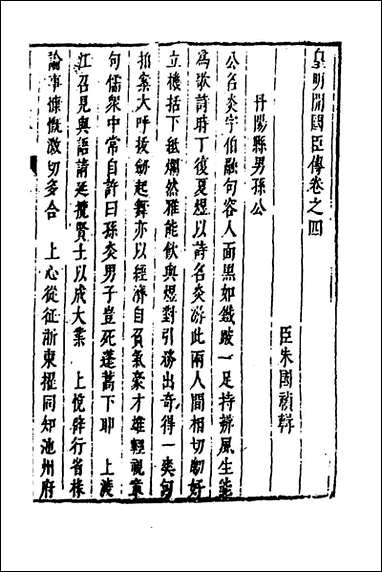 皇明開國臣傳卷之四
臣朱國禎輯
丹陽縣男孫公
公名炎字伯融句容人面黑如鐵跛一足持辨風生能
為歌詩時丁復夏煜以詩名炎游此兩人間相切劘好
立機括下紙爛然雅能飲與煜對引務出奇得一奕句
拍案大呼按劒起舞亦以經濟自負氣豪才雄輕視章
句儒衆中常自許曰孫炎男子豈死蓬蒿下耶　上渡
江召見與語請延攬賢士以成大業　上悅辟行省椽
論事慷慨激切多合　上心從征浙東擢同知池州府